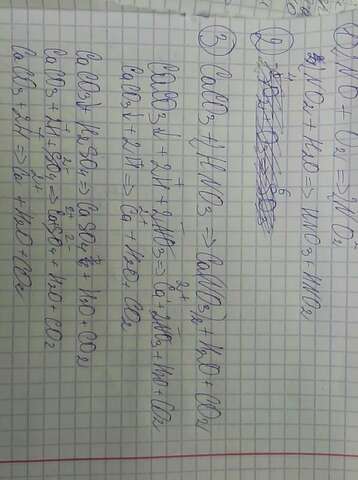 1) 2NO + O2 => 2NO2
2NO2 + H2O => HNO3 + HNO2
2
3 CaCO3 + 2HNO3 => Ca(NO3)2 + H2O + CO2
CaCO3↓ + 2H+ + 2NO3- => Ca2+ + 2NO3- + H2O + CO2
CaCO3↓ + 2H+ => Ca2+ + H2O + CO2
CaCO3↓ + H2SO4 => CaSO4 + H2O + CO2
CaCO3 + 2H+ + SO4 2- => CaSO4 + H2O + CO2
CaCO3 + 2H+ => Ca2+ + H2O + CO2